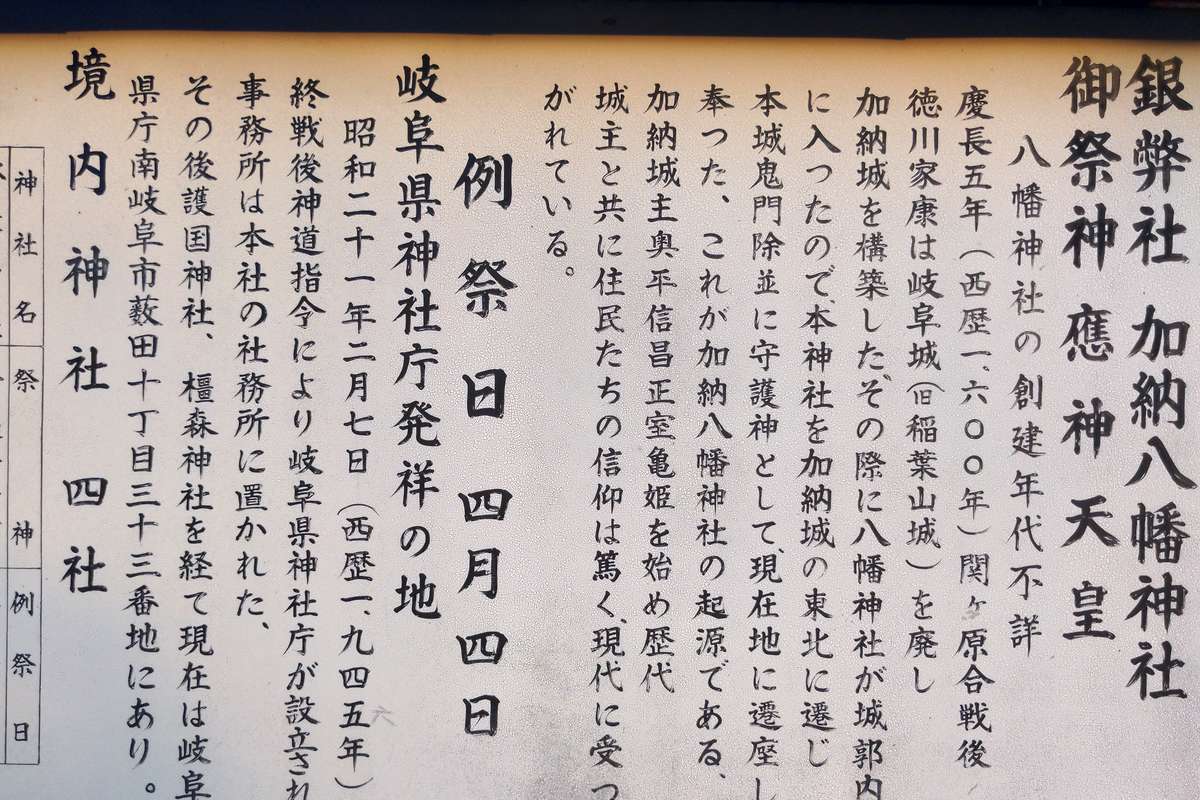 銀弊社 加納八幡神社
御祭神 應神天皇
八幡神社の創建年代不詳
慶長五年（西歴一、六〇〇年）関ヶ原合戦後
徳川家康は岐阜城（旧稲葉山城）を廃し
加納城を構築した。その際に八幡神社が城郭内
に入つたので、本神社を加納城の東北に遷じ
本城鬼門除並に守護神として、現在地に遷座し
奉つた、これが加納八幡神社の起源である、
加納城主奥平信昌正室亀姫を始め歴代
城主と共に住民たちの信仰は篤く、現代に受つ
がれている。
例祭日 四月四日
岐阜県神社庁発祥の地
昭和二十一年二月七日（西歴一、九四五年）
六
終戦後神道指令により岐阜県神社庁が設立され
事務所は本社の社務所に置かれた、
その後護国神社、橿森神社を経て現在は岐阜
県庁南岐阜市薮田十丁目三十三番地にあり。
境内神社 四社
神社名
祭神
例祭日